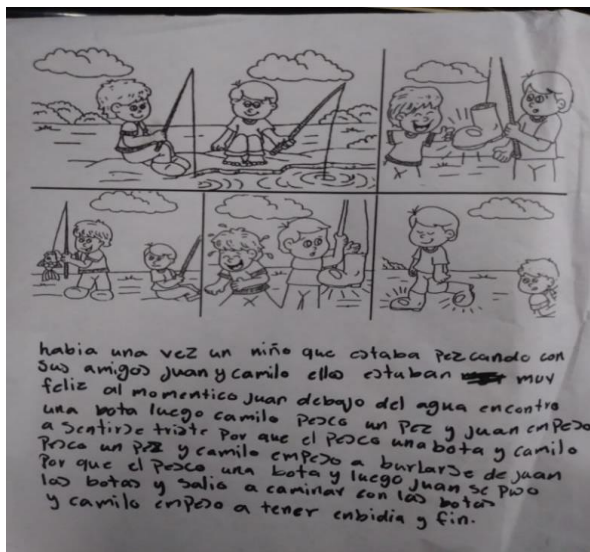 habia una vez un niño que estaba pezcando con
sus amigos juan y camilo ellos estaban muy
feliz al momentico juan debajo del agua encontro
una bota luego camilo pesco un pez y juan empeso
a sentirse triste por que el pesco una bota y camilo
pesco un pez y camilo empeso a burlarse de juan
por que el pesco una bota y luego juan se puso
las botas y salio a caminar con las botas
y camilo empeso a tener enbidia y fin.